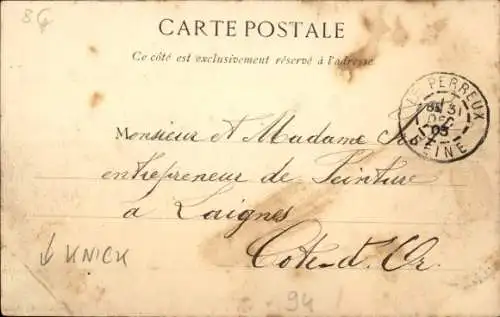 8G
CARTE POSTALE
Ce côté est exclusivement réservé à l'adresse
LE PERREUX
31
DEC
03
SEINE
Monsieur et Madame
entrepreneur de Peinture
a Laignes
Cote-d'Or.
↓ KNICK
94